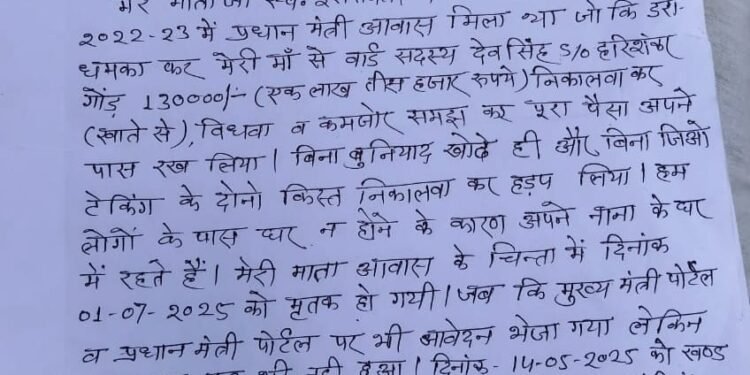 मेरे माता जी स्व.
2022-23 में प्रधान मंत्री आवास मिला था जो कि डरा-
धमका कर मेरी माँ से वार्ड सदस्य देव सिंह S/o हरिशंकर
गोंड़ 130000/- (एक लाख तीस हजार रुपये) निकालवा कर
(खाते से), विधवा व कमजोर समझ कर पूरा पैसा अपने
पास रख लिया। बिना बुनियाद खोदे ही और बिना जिओ
टेकिंग के दोनो किस्त निकालवा कर हड़प लिया। हम
लोगों के पास घर न होने के कारण अपने नाना के घर
में रहते हैं। मेरी माता आवास के चिन्ता में दिनांक
01-07-2025 को मृतक हो गयी। जब कि मुख्य मंत्री पोर्टल
व प्रधान मंत्री पोर्टल पर भी आवेदन भेजा गया लेकिन
नही हुआ। दिनांक- 14-05-2025 को खण्ड